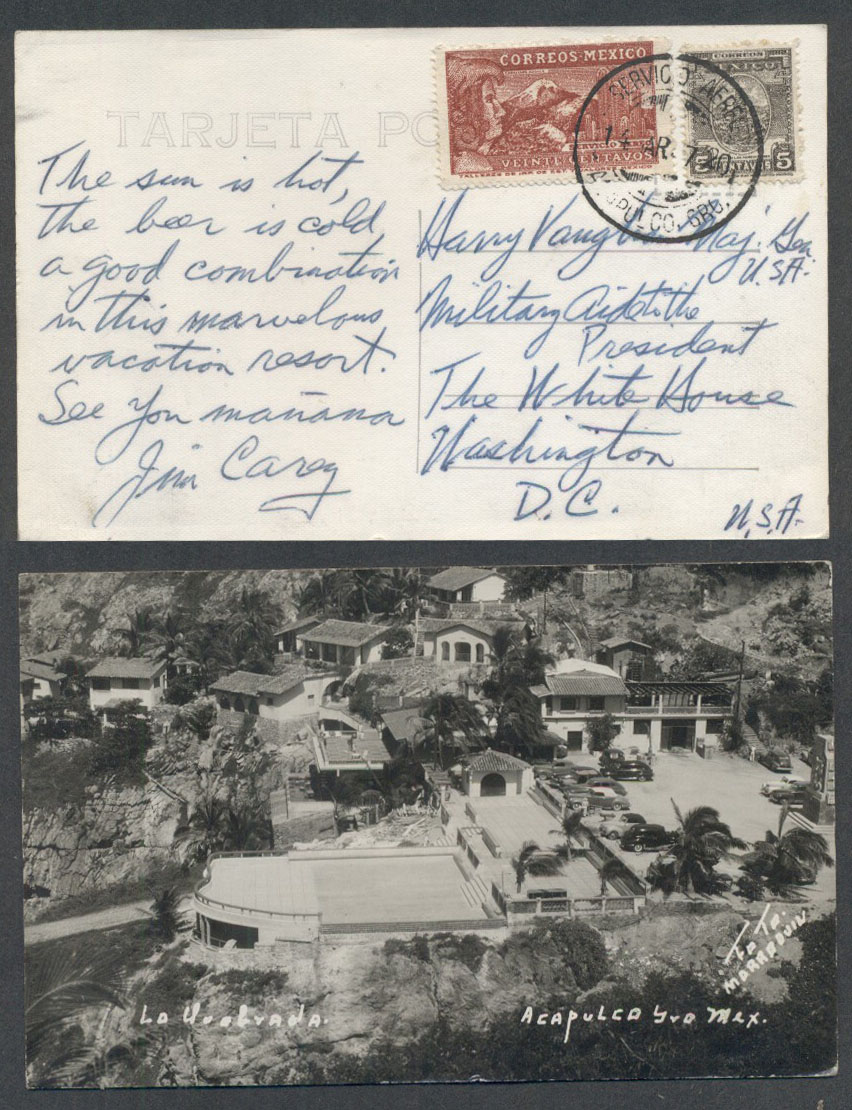 TARJETA PO
CORREOS MEXICO
SERVICIO
VEINTE CENTAVOS
CORREOS
MEXICO
5
SERVICIO AEREO
ACAPULCO, GRO.
The sun is hot,
the beer is cold,
a good combination
in this marvelous
vacation resort.
See you mañana
Jim Carey
Harry Vaughn Maj. Gen
U.S.A.
Military Aide to the
President
The White House
Washington
D.C.
U.S.A.
La Quebrada.
Acapulco Gro Mex.